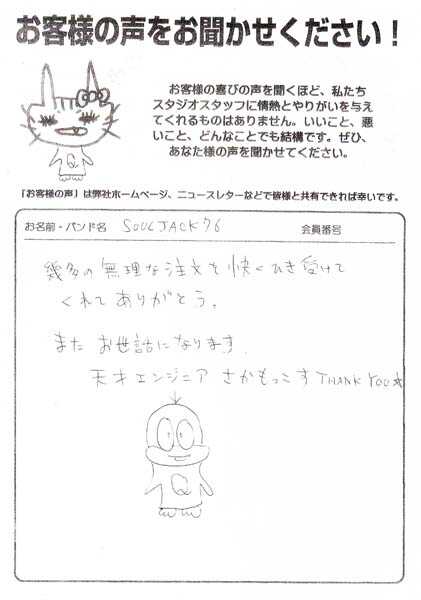 お客様の声をお聞かせください！
お客様の喜びの声を聞くほど、私たち
スタジオスタッフに情熱とやりがいを与え
てくれるものはありません。いいこと、悪
いこと、どんなことでも結構です。ぜひ、
あなた様の声を聞かせてください。
Q
「お客様の声」は弊社ホームページ、ニュースレターなどで皆様と共有できれば幸いです。
お名前・バンド名 SOULJACK76 会員番号
幾多の無理な注文を快くひき受けて
くれてありがとう。
また お世話になります。
天才エンジニア さかもっこす THANK YOU☆
Q